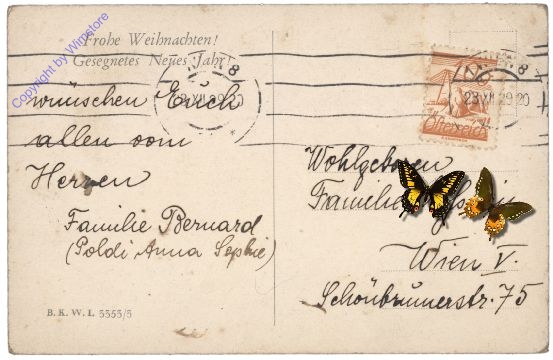 Copyright by Wimstore
Frohe Weihnachten!
Gesegnetes Neues Jahr!
wünschen Euch
allen vom
Herzen
Familie Bernard
(Poldi Anna Sophie)
B. K. W. I. 3333/3
8
23.XII.29.20
Österreich
Wohlgeboren
Familie
Wien V.
Schönbrunnerstr. 75